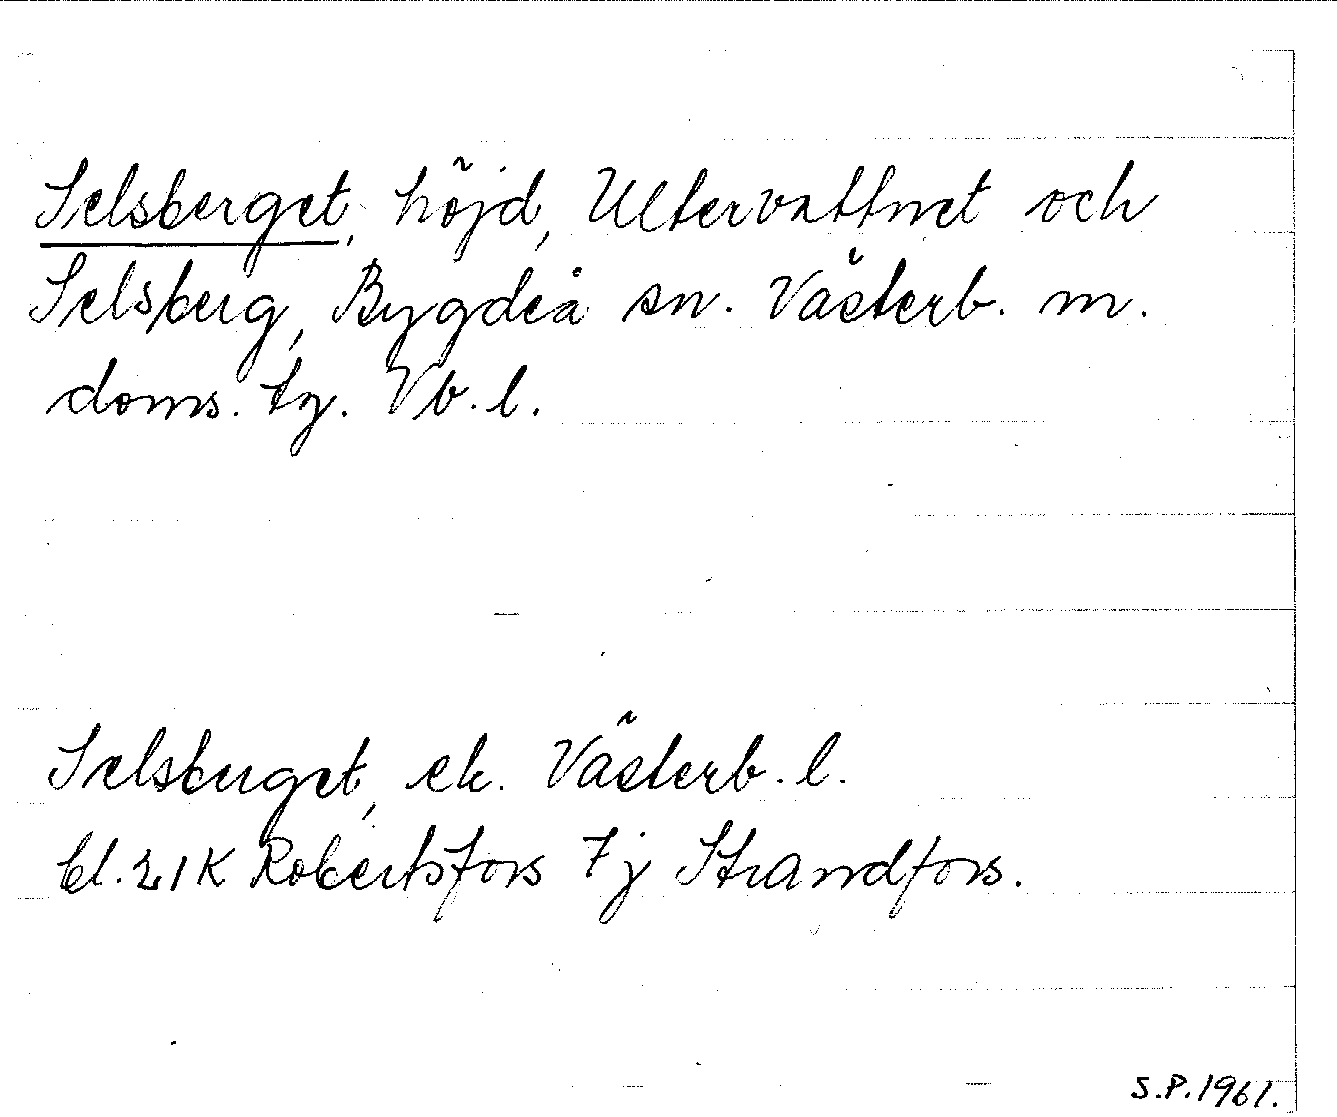 Selsberget, höjd, Ultervattnet och
Selsberg, Bygdeå sn. Västerb. m.
doms. tg. Vb. l.
Selsberget, ek. Västerb. l.
bl. 21K Robertsfors 7j Strandfors.
S.P. 1961.